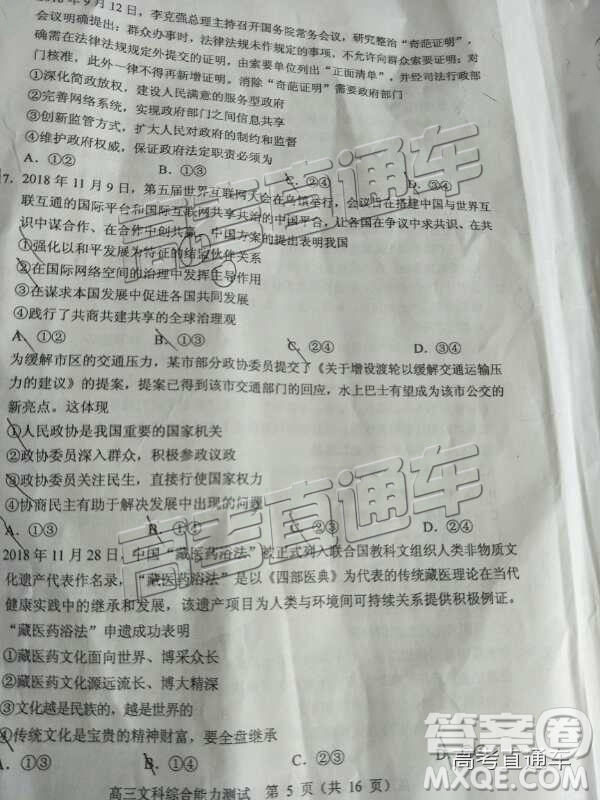 2018 年 9 月 12 日，李克强总理主持召开国务院常务会议，研究整治“奇葩证明”，
会议明确提出：群众办事时，法律法规未作规定的事项，不允许向群众索要证明；对
确需在法律法规规定外提交的证明，由索要单位列出“正面清单”，并经司法行政部
门核准，此外一律不得再新增证明。消除“奇葩证明”需要政府部门
①深化简政放权，建设人民满意的服务型政府
②完善网络系统，实现政府部门之间信息共享
③创新监管方式，扩大人民对政府的制约和监督
④维护政府权威，保证政府法定职责必须为
A．①② B．①③ C．②④ D．③④
7．2018 年 11 月 9 日，第五届世界互联网大会在乌镇举行，会议旨在搭建中国与世界互
联互通的国际平台和国际互联网共享共治的中国平台，让各国在争议中求共识、在共
识中谋合作、在合作中创共赢。中国方案的提出表明我国
①强化以和平发展为特征的结盟伙伴关系
②在国际网络空间的治理中发挥主导作用
③在谋求本国发展中促进各国共同发展
④践行了共商共建共享的全球治理观
A．①② B．①③ C．②④ D．③④
为缓解市区的交通压力，某市部分政协委员提交了《关于增设渡轮以缓解交通运输压
力的建议》的提案，提案已得到该市交通部门的回应，水上巴士有望成为该市公交的
新亮点。这体现
①人民政协是我国重要的国家机关
②政协委员深入群众，积极参政议政
③政协委员关注民生，直接行使国家权力
④协商民主有助于解决发展中出现的问题
A．①③ B．①④ C．②③ D．②④
2018 年 11 月 28 日，中国“藏医药浴法”被正式列入联合国教科文组织人类非物质文
化遗产代表作名录，“藏医药浴法”是以《四部医典》为代表的传统藏医理论在当代
健康实践中的继承和发展，该遗产项目为人类与环境间可持续关系提供积极例证。
“藏医药浴法”申遗成功表明
①藏医药文化面向世界、博采众长
②藏医药文化源远流长、博大精深
③文化越是民族的，越是世界的
④传统文化是宝贵的精神财富，要全盘继承
A．①③ B．①④ C．②③ D．
高三文科综合能力测试 第 5 页（共 16 页）
高考直通车
高考直通车
高考直通车
答案圈
高考直通车
MXQE.COM